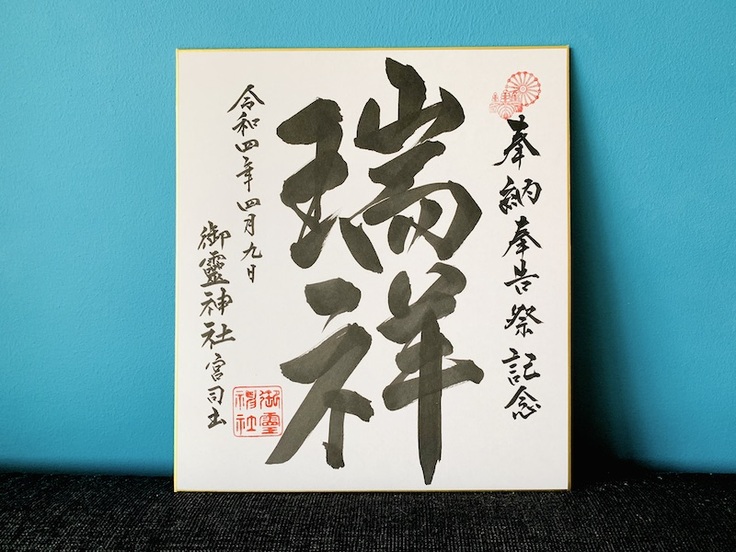 奉納奉告祭記念
瑞祥
令和四年四月九日
御靈神社宮司出
御靈神社